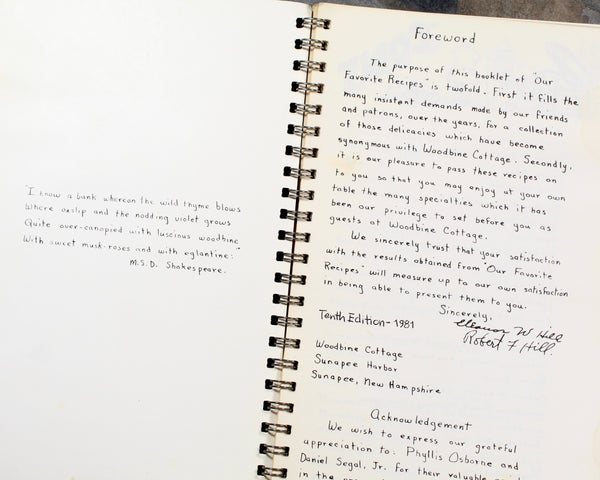 "I know a bank whereon the wild thyme blows
Where oxslip and the nodding violet grows
Quite over-canopied with luscious woodbine
With sweet musk-roses and with eglantine:"
M.S.D. Shakespeare.
Foreword
The purpose of this booklet of "Our
Favorite Recipes" is twofold. First it fills the
many insistent demands made by our friends
and patrons, over the years, for a collection
of those delicacies which have become
synonymous with Woodbine Cottage. Secondly,
it is our pleasure to pass these recipes on
to you so that you may enjoy at your own
table the many specialties which it has
been our privilege to set before you as
guests at Woodbine Cottage.
We sincerely trust that your satisfaction
with the results obtained from "Our Favorite
Recipes" will measure up to our own satisfaction
in being able to present them to you.
Sincerely,
Eleanor W Hill
Robert F Hill.
Tenth Edition - 1981
Woodbine Cottage
Sunapee Harbor
Sunapee, New Hampshire
Acknowledgement
We wish to express our grateful
appreciation to: Phyllis Osborne and
Daniel Segal, Jr. for their valuable
in the